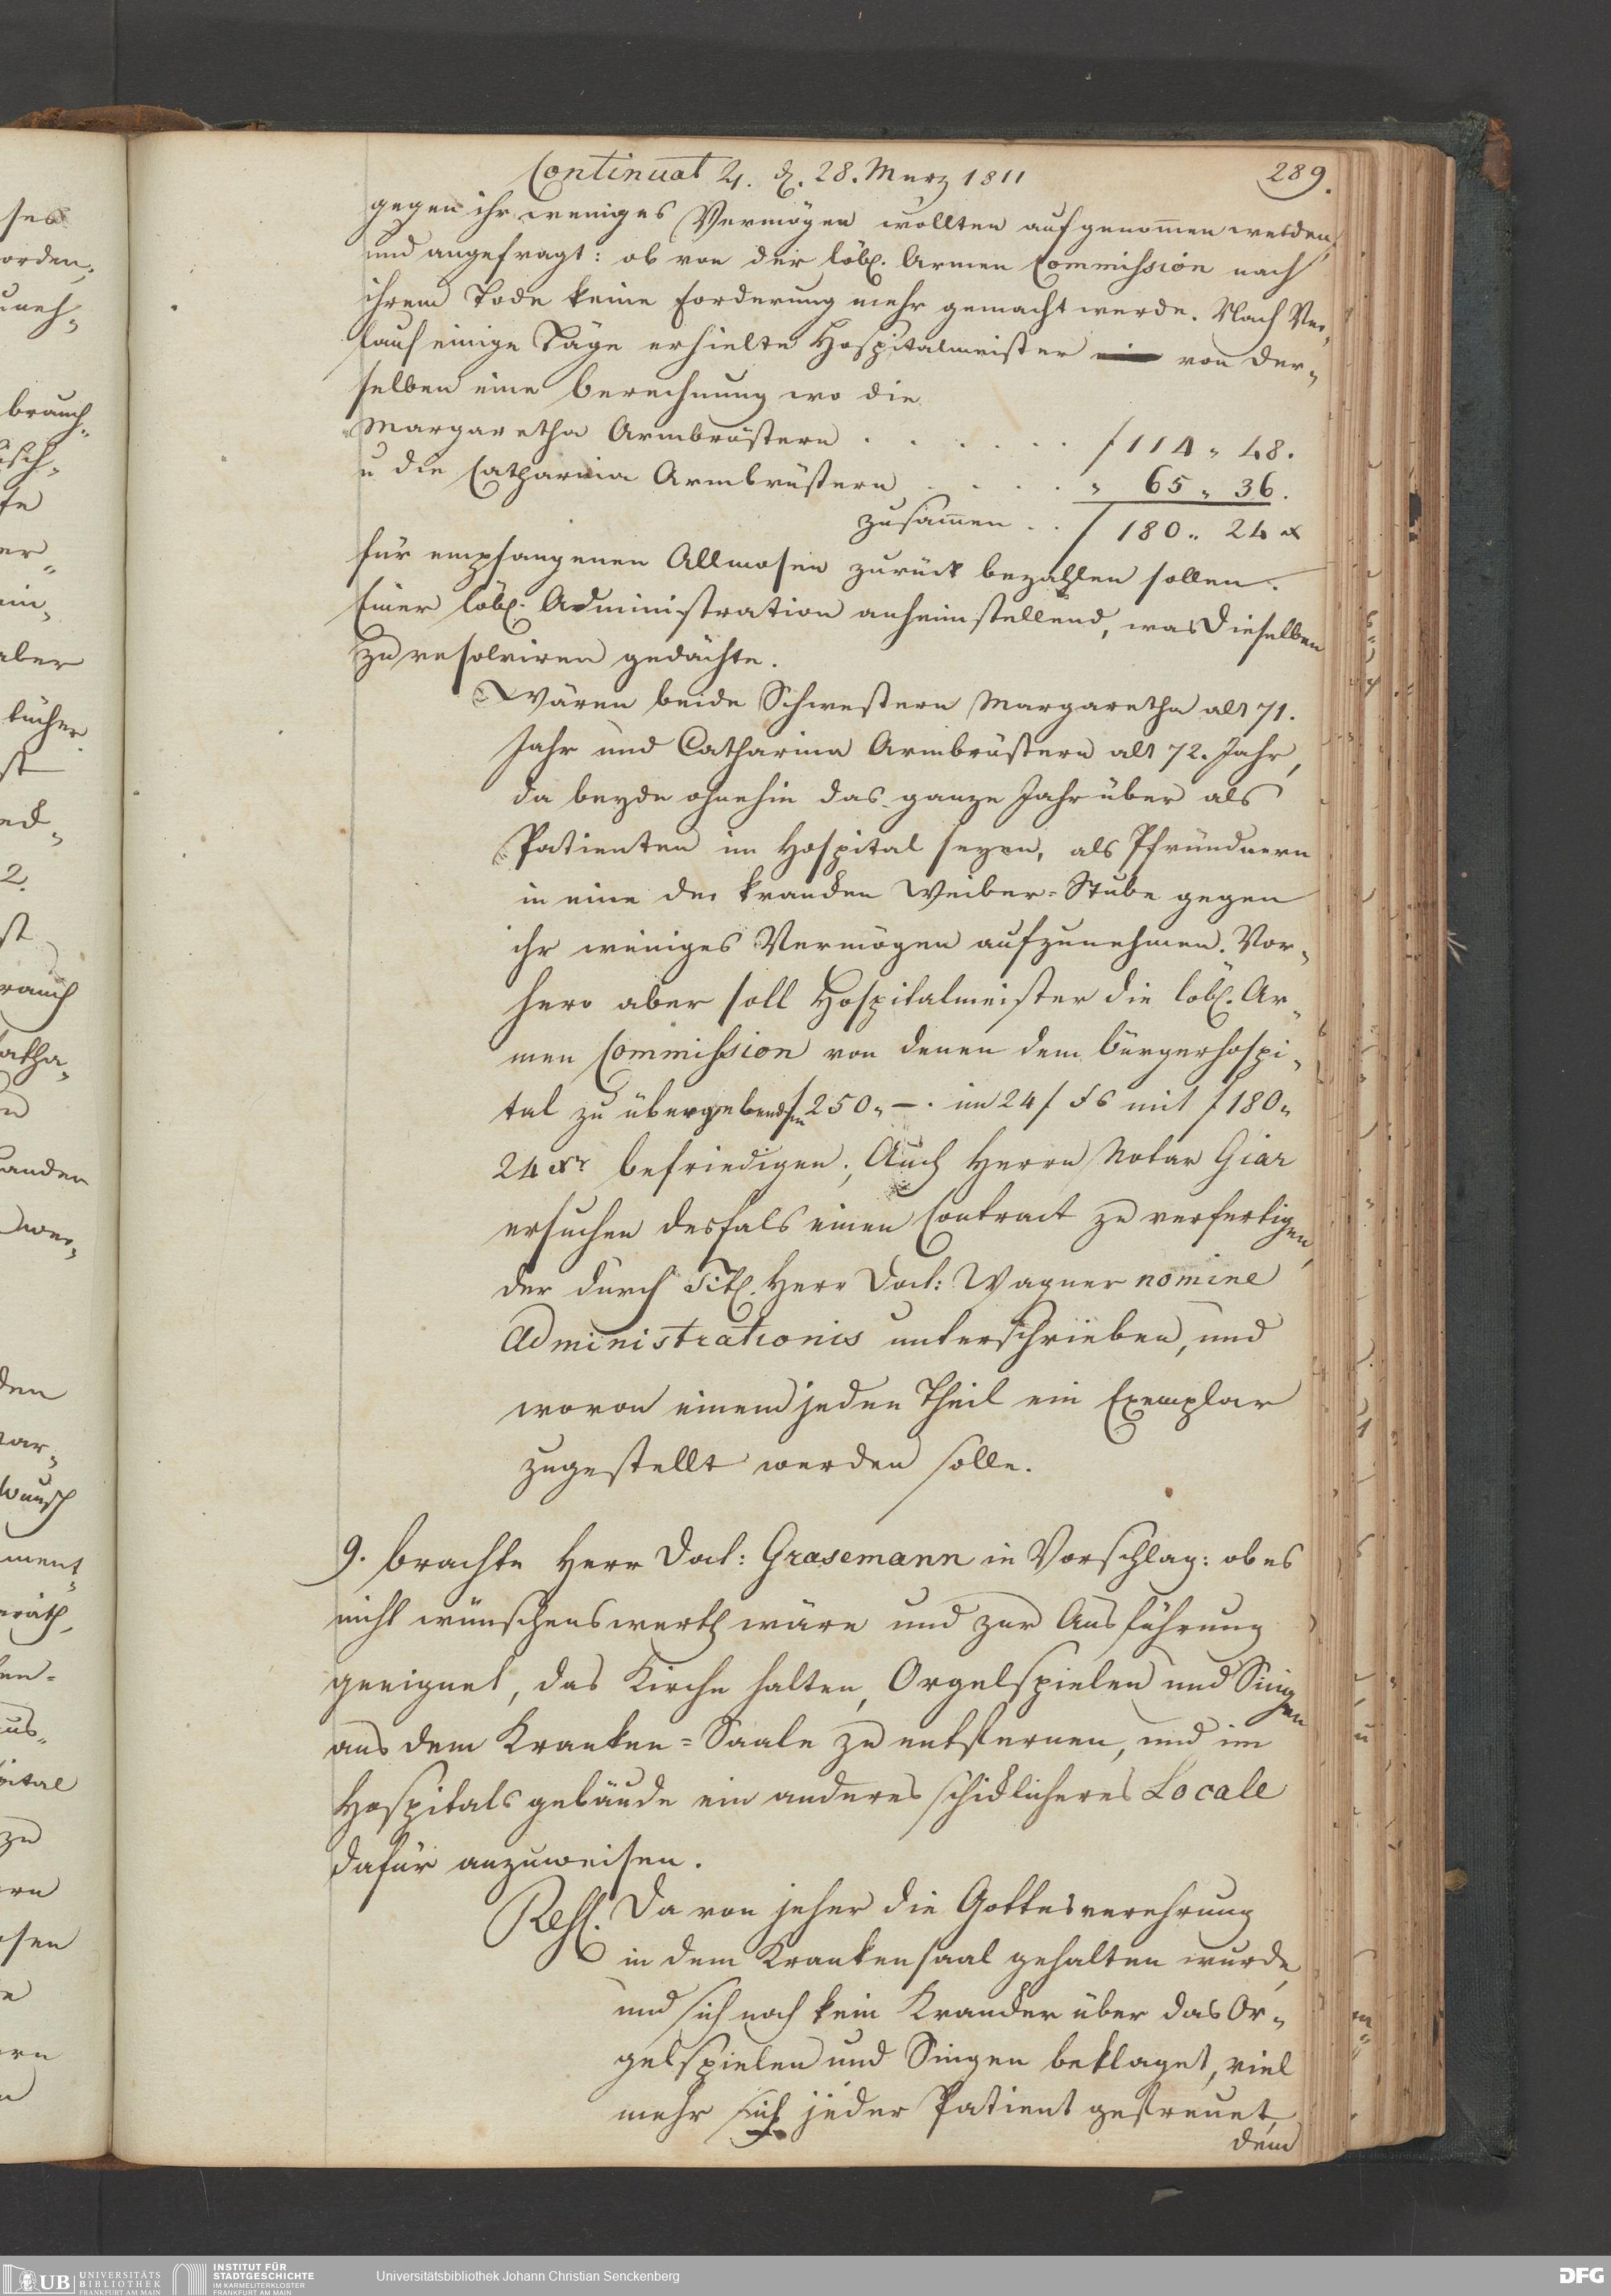 Continuat 21. d. 28. Merz 1811
289.
gegen ihr weniges Vermögen wollten aufgenom̅en werden,
und angefragt: ob von der löbl. Armen Commission nach
ihrem Tode keine Forderung mehr gemacht werde. Nach Ver„
lauf einige Täge erhielte Hospitalmeister von der„
selben eine Berechnung wo die
Margaretha Armbrüstern . . . . . . f 114 „ 48.
u die Catharina Armbrüstern . . . . „ 65 „ 36.
zusam̅en . . f 180 „ 24 x
für empfangenen Allmosen zurück bezahlen sollen.
Einer löbl. Administration anheimstellend, was Dieselben
zu resolviren gedächte.
Wären beide Schwestern Margaretha alt 71.
Jahr und Catharina Armbrüstern alt 72. Jahr,
da beyde ohnehin das ganze Jahr über als
Patienten im Hospital seyen, als Pfründnern
in eine der kranken Weiber-Stube gegen
ihr weniges Vermögen aufzunehmen. Vor„
hero aber soll Hospitalmeister die löbl. Ar„
men Commission von denen dem Bürgerhospi„
tal zu übergebenden f 250 „ – . im 24 f Fs mit f 180 „
24 xr befriedigen; Auch Herrn Notar Giar
ersuchen desfals einen Contract zu verfertigen,
der durch Titl. Herr Doct: Wagner nomine
Administrationis unterschrieben, und
wovon einem jeden Theil ein Exemplar
zugestellt werden solle.
9. brachte Herr Doct: Grasemann in Vorschlag: ob es
nicht wünschenswerth wäre und zur Ausführung
geeignet, das Kirche halten, Orgelspielen und Singen
aus dem Kranken-Saale zu entfernen, und im
Hospitalsgebäude ein anderes schicklicheres Locale
dafür anzuweisen.
Resl. Da von jeher die Gottesverehrung
in dem Krankensaal gehalten wurde,
und sich noch kein Kranker über das Or„
gelspielen und Singen beklaget, viel
mehr sich jeder Patient gefreuet,
dem
UB UNIVERSITÄTS
BIBLIOTHEK
FRANKFURT AM MAIN
INSTITUT FÜR
STADTGESCHICHTE
IM KARMELITERKLOSTER
FRANKFURT AM MAIN
Universitätsbibliothek Johann Christian Senckenberg
DFG